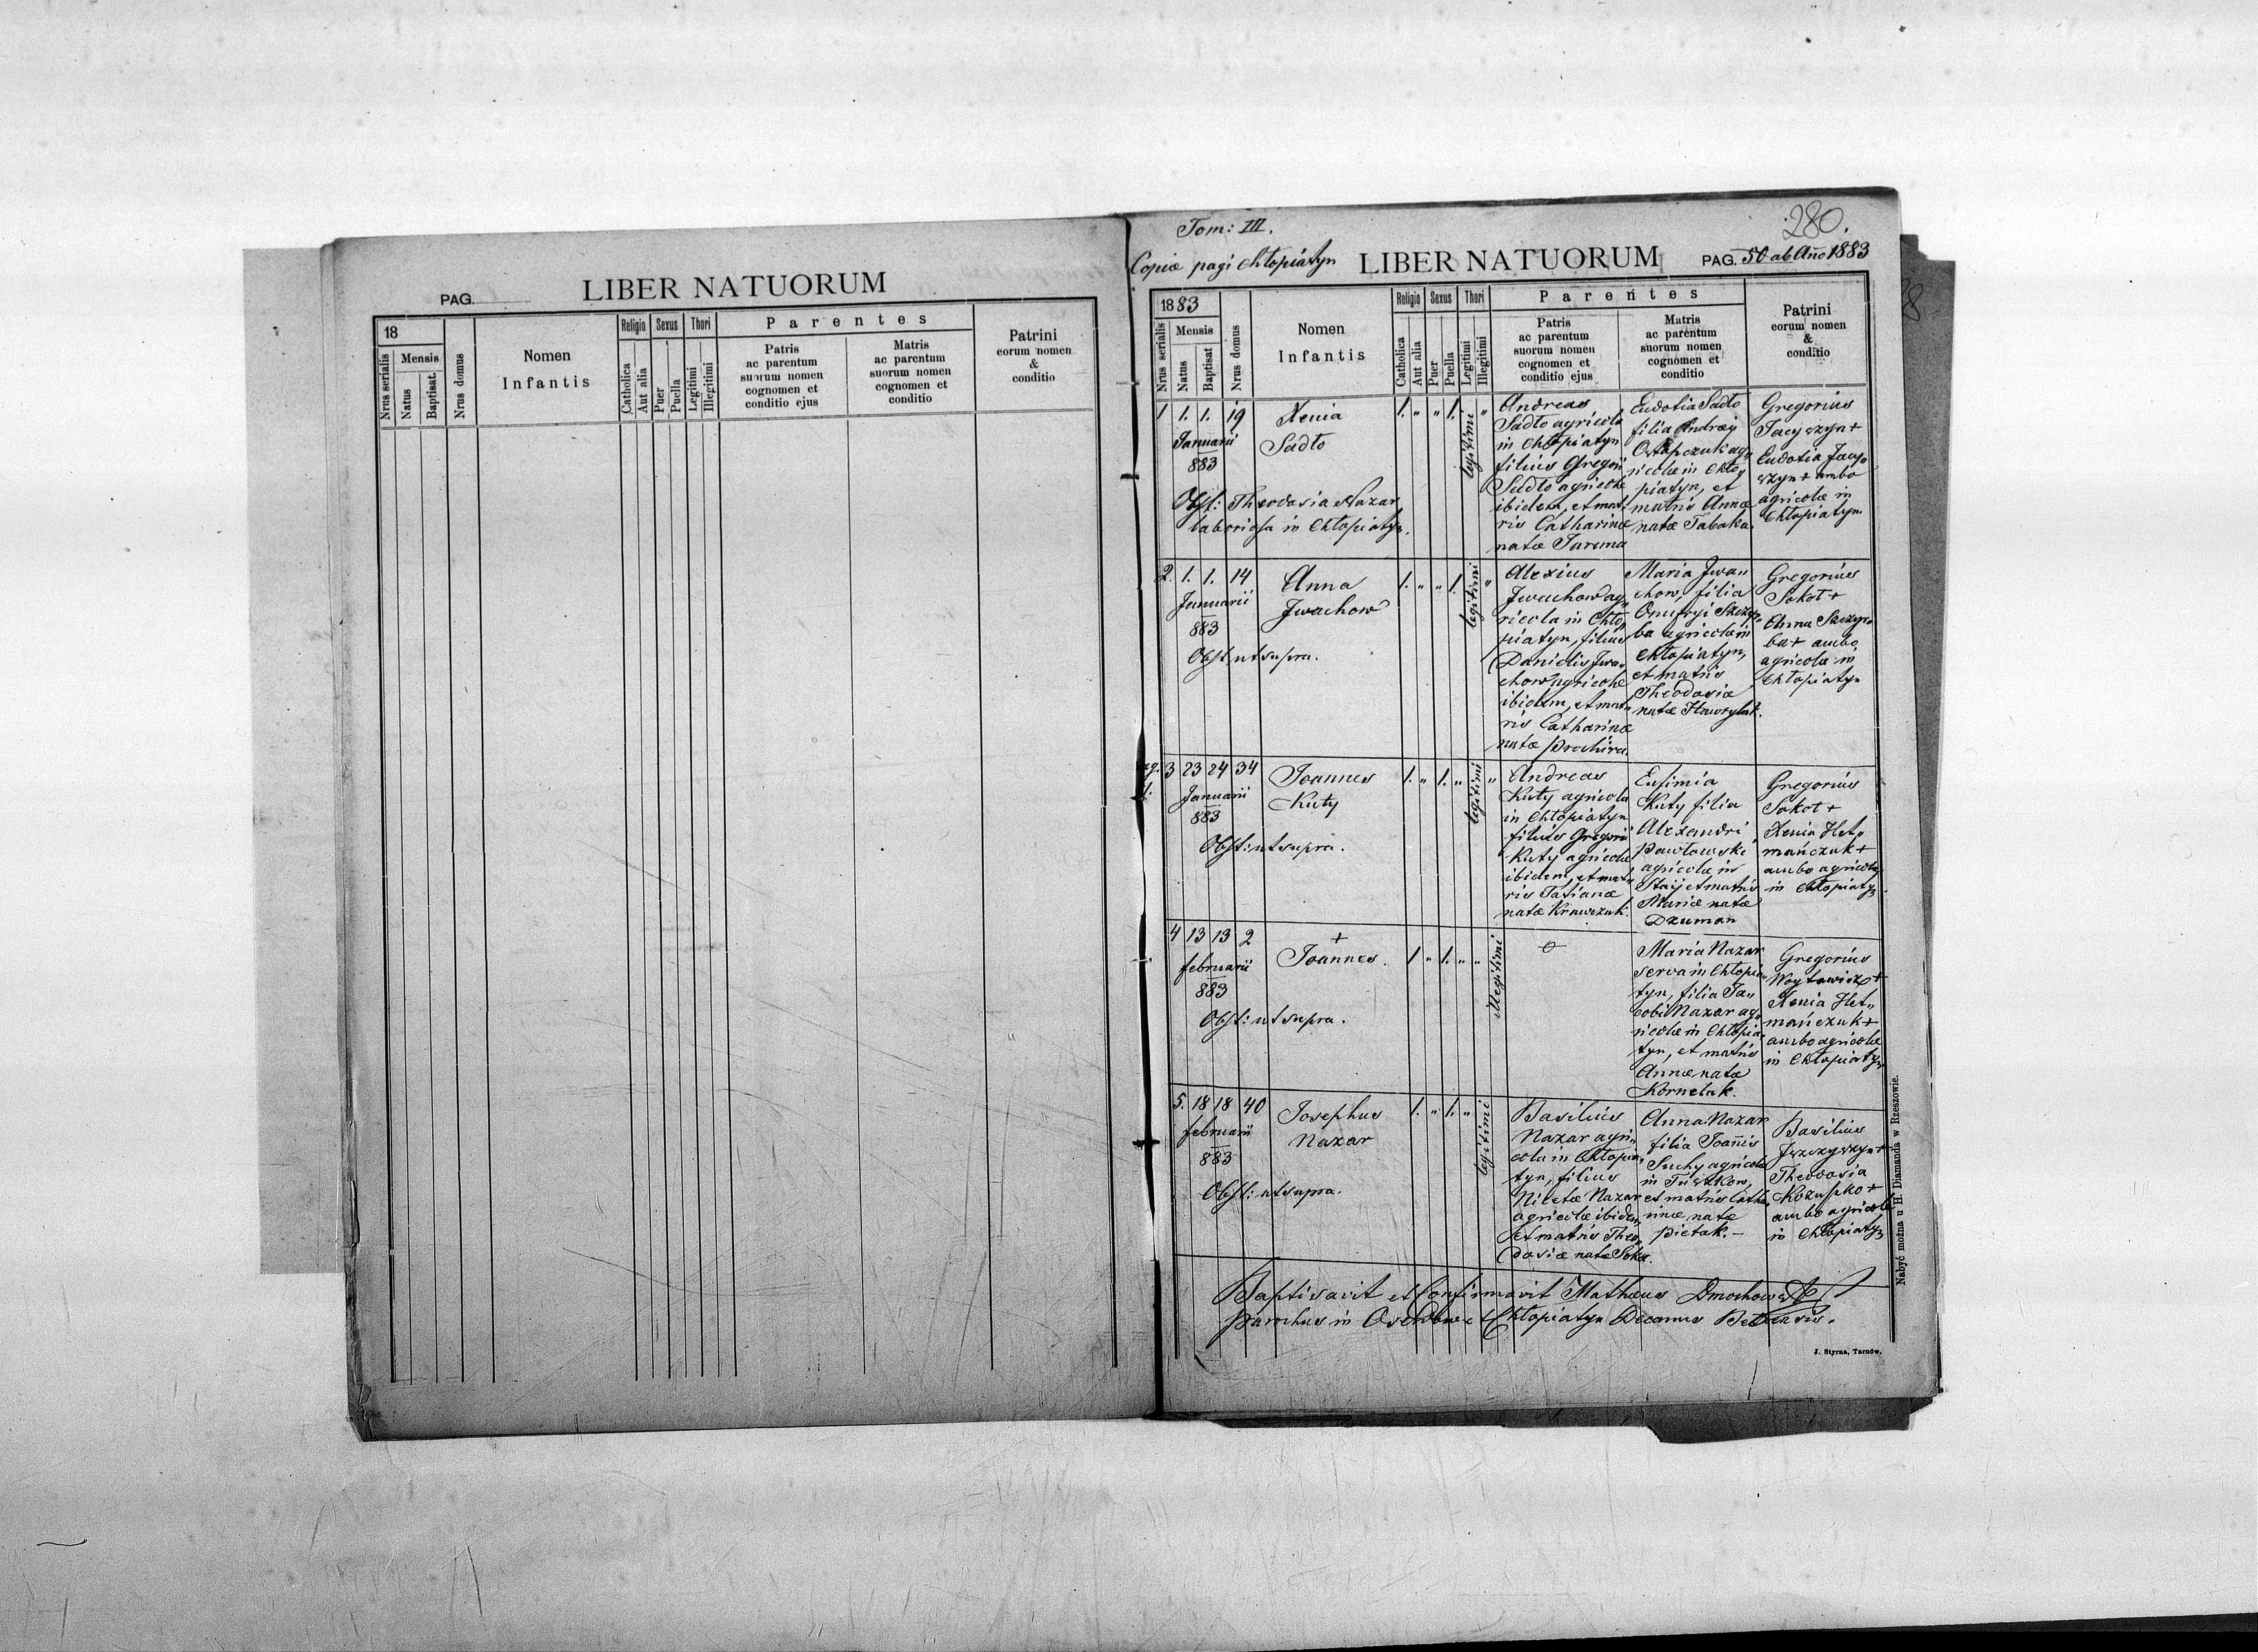 PAG.
LIBER NATUORUM
18
Nrus serialis
Mensis
Natus
Baptisat.
Nrus domus
Nomen
Infantis
Religio
Catholica
Aut alia
Sexus
Puer
Puella
Thori
Legitimi
Illegitimi
Parentes
Patris
ac parentum
suorum nomen
cognomen et
conditio ejus
Matris
ac parentum
suorum nomen
cognomen et
conditio
Patrini
eorum nomen
&
conditio
Tom: III.
280.
Copiæ pagi Chłopiatyn
LIBER NATUORUM
PAG. 50 ab Año 1883
1883
Nrus serialis
Mensis
Natus
Baptisat
Nrus domus
Nomen
Infantis
Religio
Catholica
Aut alia
Sexus
Puer
Puella
Thori
Legitimi
Illegitimi
Parentes
Patris
ac parentum
suorum nomen
cognomen et
conditio ejus
Matris
ac parentum
suorum nomen
cognomen et
conditio
Patrini
eorum nomen
&
conditio
1 1. 1. 19
Januarii
883
Xenia
Sadło
1. " " 1. legitimi "
Obst: Theodosia Nazar
laboriosa in Chłopiatyn.
Andreas
Sadło agricola
in Chłopiatyn
filius Gregorii
Sadło agricolæ
ibidem, et mat
ris Catharinæ
natæ Jarema
Eudosia Sadło
filia Andreij
Ostapczuk ag„
ricolæ in Chło„
piatyn, et
matris Annæ
natæ Tabaka.
Gregorius
+
Eudosia
+ ambo
agricolæ in
Chłopiatyn
2. 1. 1. 14
Januarii
883
Anna
Iwachow
1. " " 1. legitimi "
Obst: ut supra.
Alexius
Iwachow ag„
ricola in Chło„
piatyn, filius
Danielis Iwa„
chow agricolæ
ibidem, et mat„
ris Catharinæ
natæ Prochira.
Maria Iwa„
chow, filia
Onufryi
agricolæ in
Chłopiatyn,
et matris
Theodosiæ
natæ Hawrylak.
Gregorius
Sokoł +
Anna
+ ambo
agricolæ in
Chłopiatyn
3 23 24 34
Januarii
883
Joannes
Kuty
1. " 1. " legitimi "
Obst: ut supra.
Andreas
Kuty agricola
in Chłopiatyn
filius Gregorii
Kuty agricolæ
ibidem, et mat„
ris Tatianæ
natæ Krawczuk.
Eufimia
Kuty filia
Alexandri
Pawłowski
agricolæ in
Staij et matris
Mariæ natæ
Dzuman
Gregorius
Sokoł +
Xenia Het„
mańczuk +
ambo agricolæ
in Chłopiatyn
4 13 13 2
februarii
883
+
Joannes.
1 " 1. " " illegitimi
Obst: ut supra.
Maria Nazar
serva in Chłopia„
tyn, filia Ja„
cobi Nazar ag„
ricolæ in Chłopia„
tyn, et matris
Annæ natæ
Kornelak.
Gregorius
Woytowicz +
Xenia Het„
mańczuk +
ambo agricolæ
in Chłopiatyn
5. 18 18 40
februarii
883
Josephus
Nazar
1. " 1. " legitimi
Obst: ut supra.
Basilius
Nazar agri„
cola in Chłopia„
tyn, filius
Nicetæ Nazar
agricolæ ibidem,
et matris Theo„
dosiæ natæ
Anna Nazar
filia Joañis
Suchy agricolæ
in
et matris Catha„
rinæ natæ
Pietak. –
Basilius
+
Theodosia
+
ambo agricolæ
in Chłopiatyn
Baptisavit et Confirmavit Mathæus Dmochowski
Parochus in Oserdow et Chłopiatyn Decanus Belzensis.
Nabyć można u H. Diamanda w Rzeszowie.
J. Styrna, Tarnów.